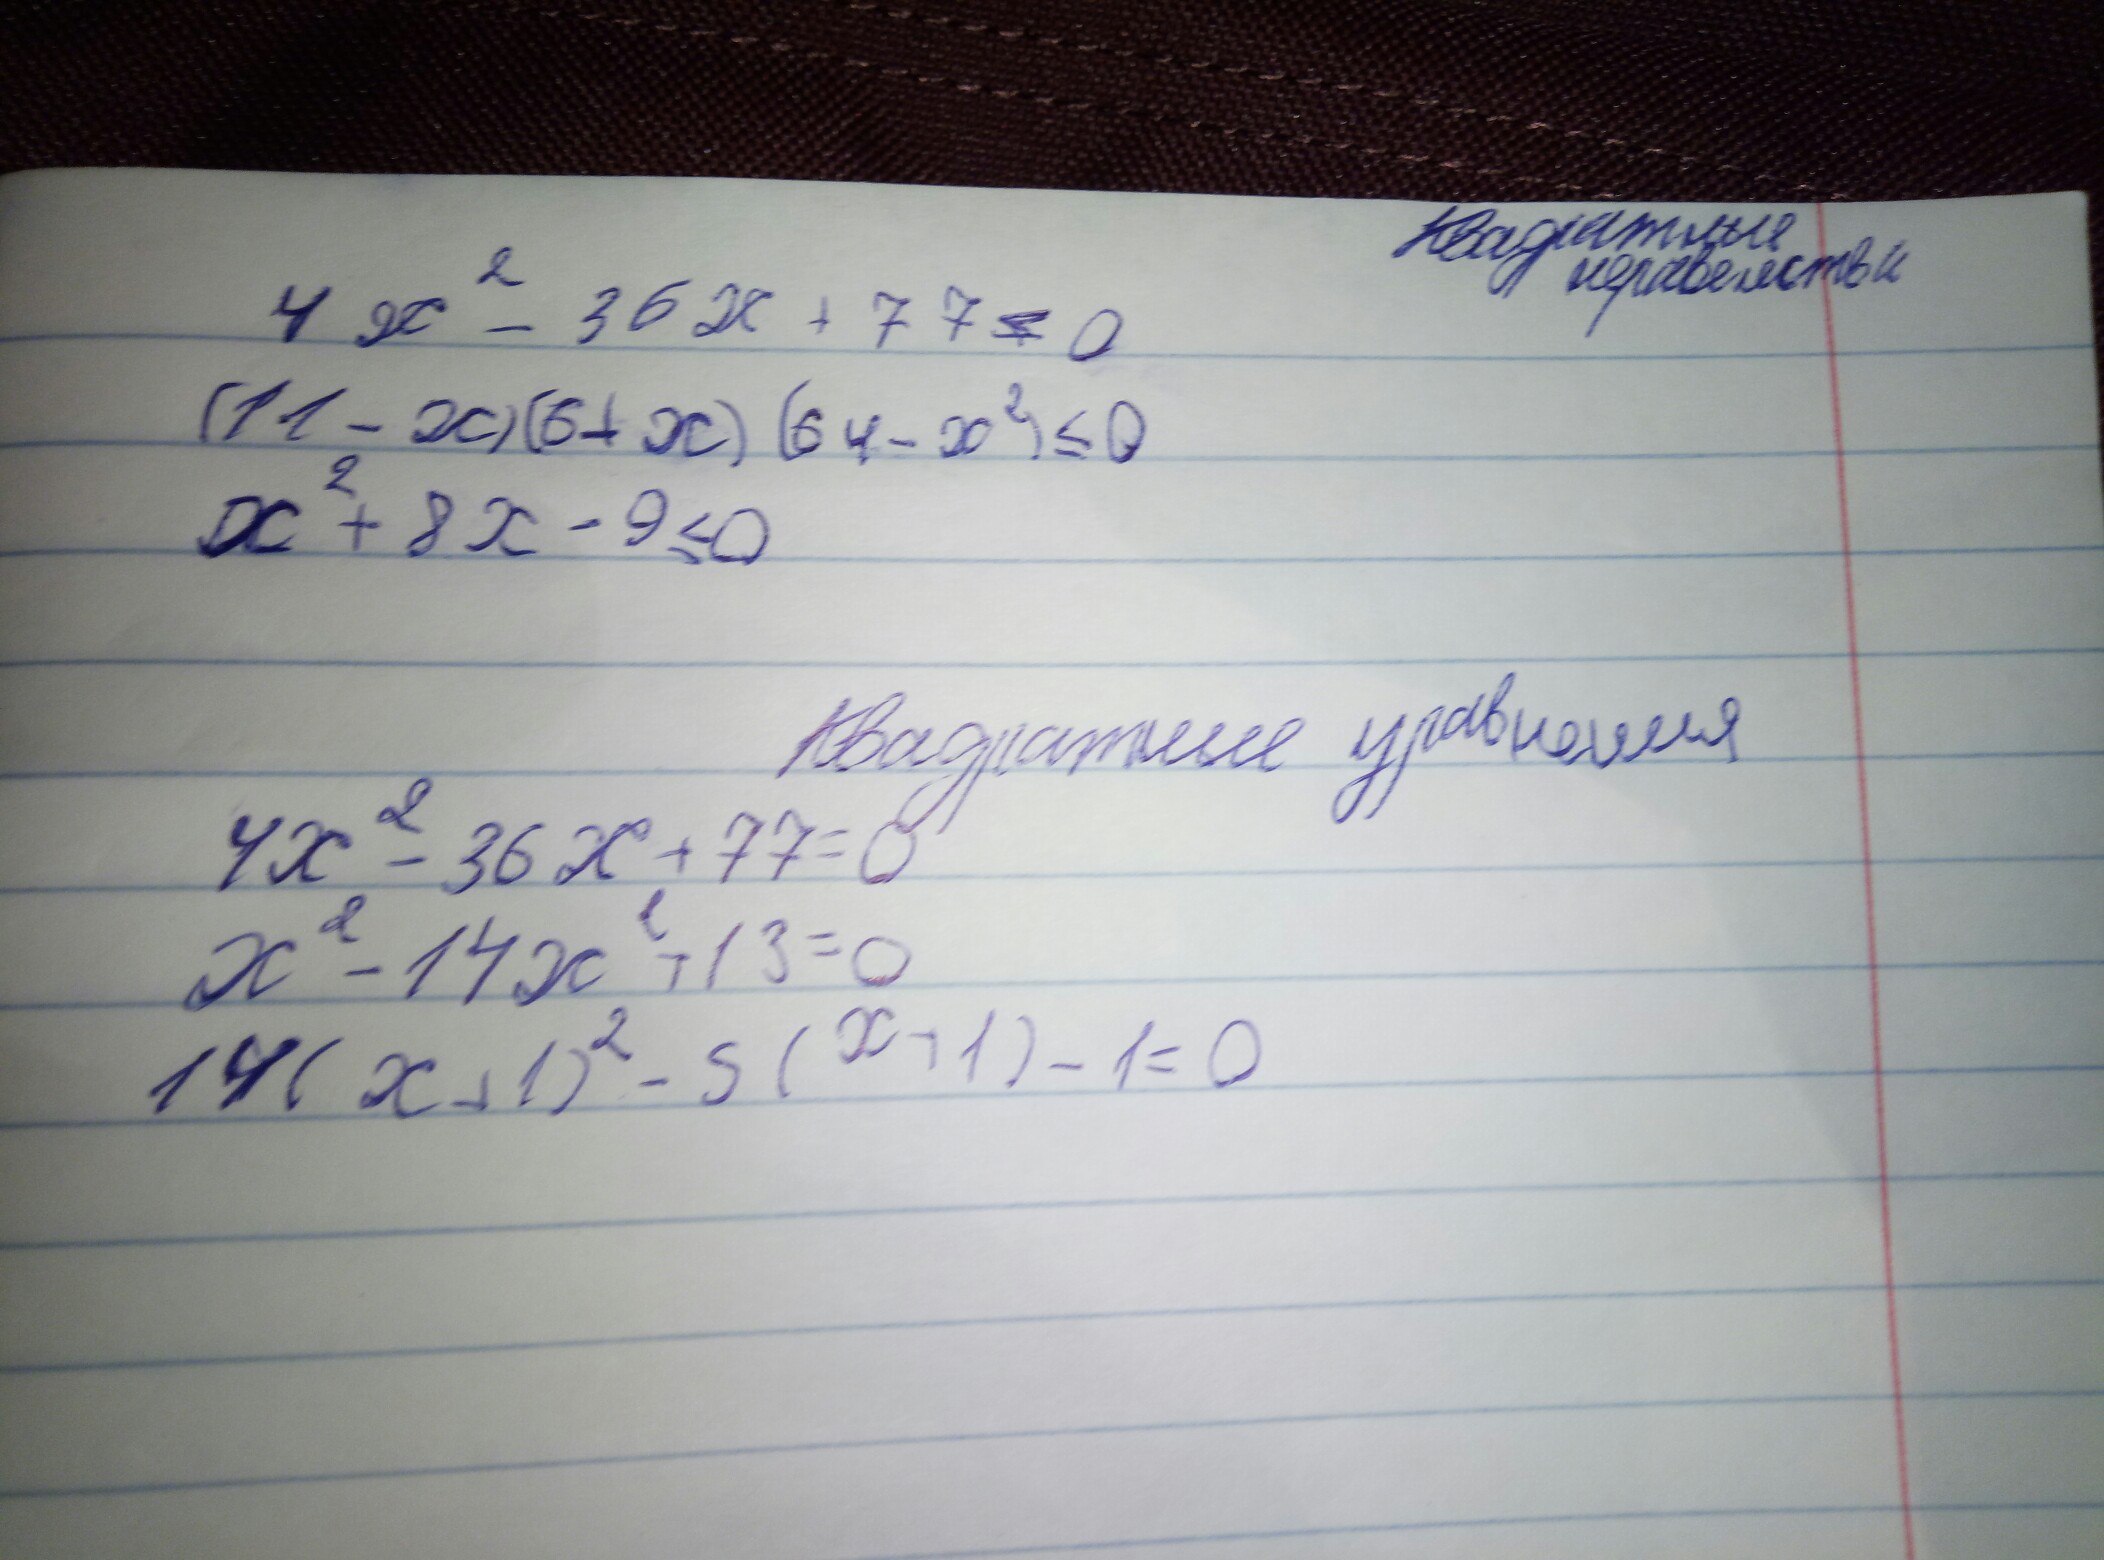 Квадратные
неравенства
4x² - 36x + 77 < 0
(11 - x)(6 + x)(64 - x²) ≤ 0
x² + 8x - 9 ≤ 0
Квадратные уравнения
4x² - 36x + 77 = 0
x² - 14x² + 13 = 0
14(x + 1)² - 5(x + 1) - 1 = 0